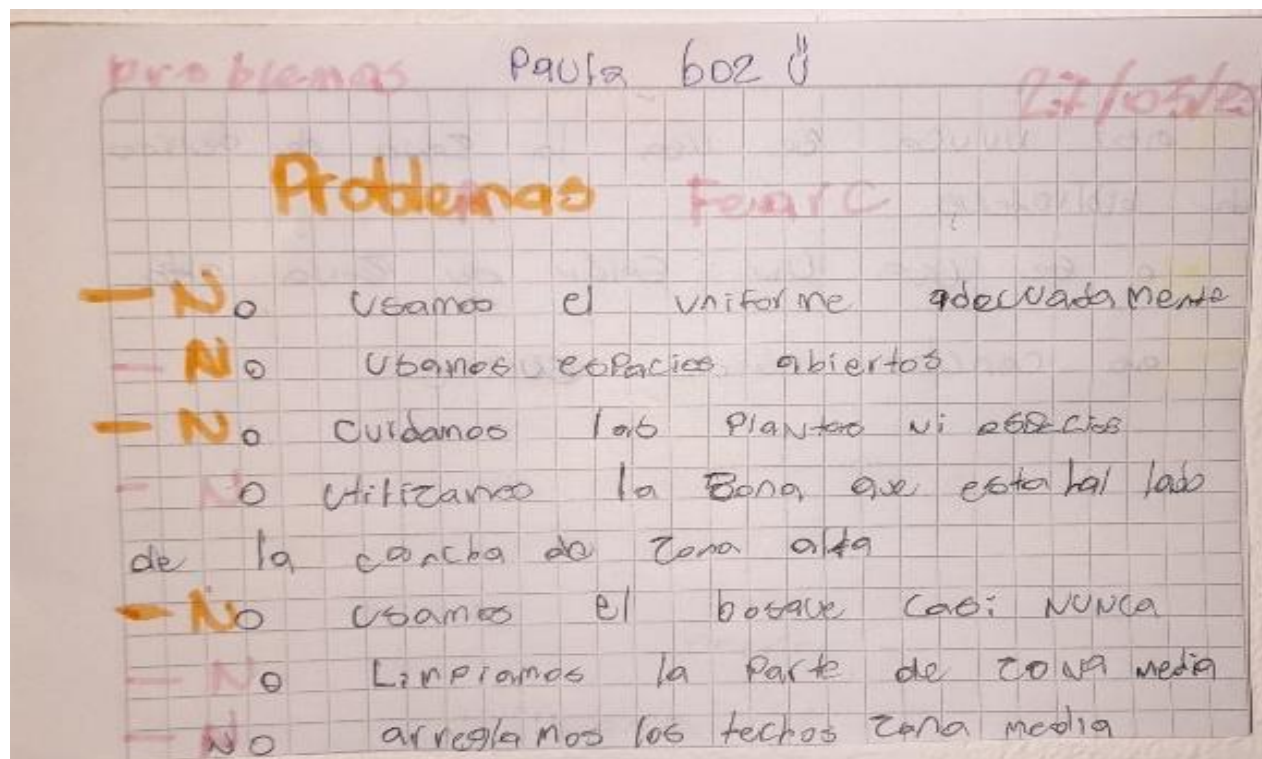 Paula 602
problemas 27/05/2
Problemas FeuarC
- No usamos el uniforme adecuadamente
- No usamos espacios abiertos
- No cuidamos las plantas ni especies
- No utilizamos la zona que esta hal lado
de la cancha de zona alta
- No usamos el bosque casi NUNCA
- No Limpiamos la parte de zona media
- No arreglamos los techos zona media